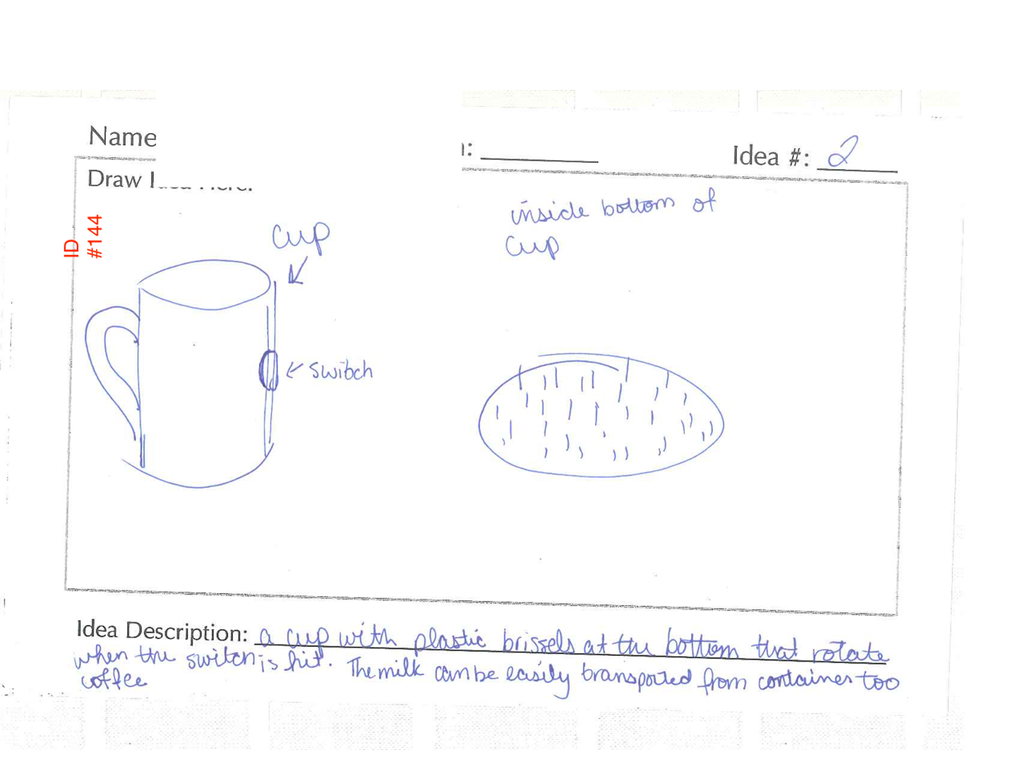 Name
n: ________ Idea #: 2
Draw Idea Here:
ID
#144
inside bottom of
cup
cup
switch
Idea Description: a cup with plastic brissels at the bottom that rotate
when the switch is hit. The milk can be easily transported from container too
coffee